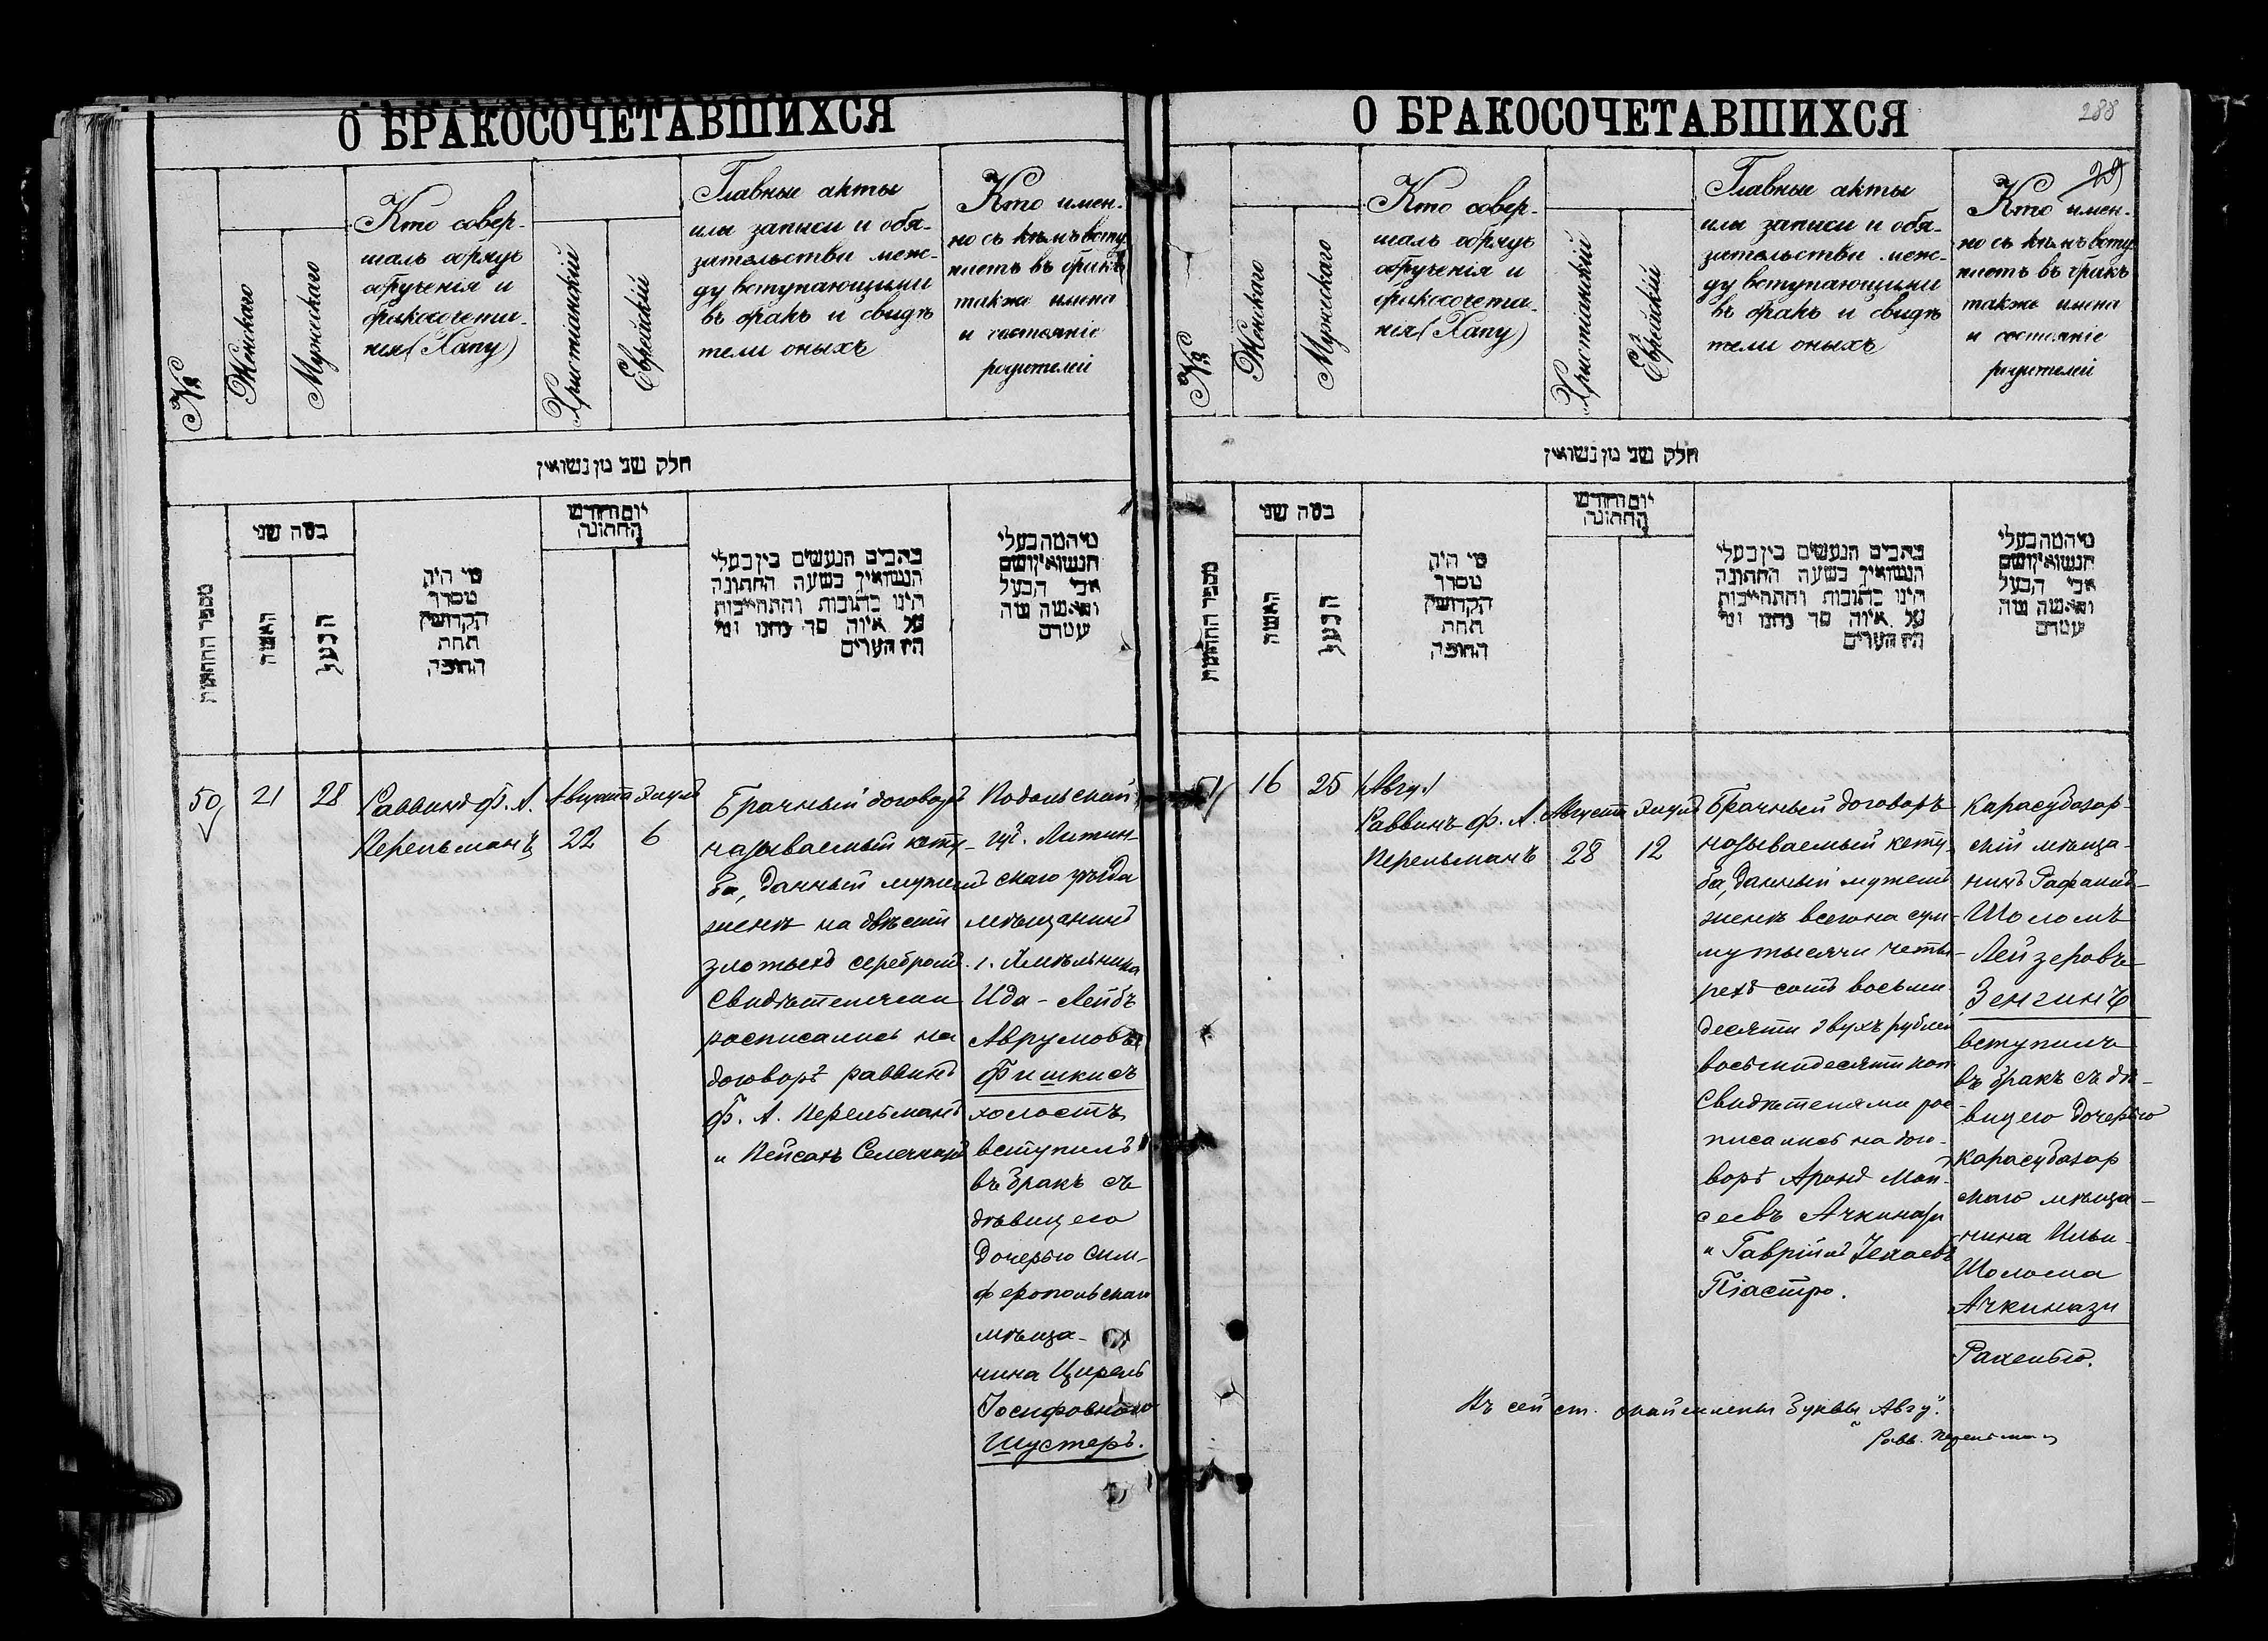 О БРАКОСОЧЕТАВШИХСЯ
№
Женскаго
Мужескаго
Кто совер-
шалъ обрядъ
обрученія и
бракосочета-
нія (Хапу)
Христіанскій
Еврейскій
Главные акты
или записи и обя-
зательства меж-
ду вступающими
въ бракъ и свидѣ
тели оныхъ
Кто имен-
но съ кѣмъ всту
паетъ въ бракъ
также имена
и состояніе
родителей
חלק שני מן נשואין
מספר החתונות
במה שני
האשה
הבעל
מי היה
מסדר
הקדושין
תחת
החופה
יום וחודש
החתונה
כתבים הנעשים בין בעלי
הנשואין בשעה החתונה
הינו כתובות והתחייבות
על איזה סך נתנו ומי
היו העדים
מי המה בעלי
הנשואין ושם
אבי הבעל
והאשה מה
מעמדם
50
21
28
Раввинъ Ф. А.
Перельманъ
Августа
22
6
Брачный договоръ
называемый кету-
ба, данный мужемъ
женѣ на двѣсти
злотыхъ серебромъ.
Свидѣтелями
росписались на
договорѣ раввинъ
Ф. А. Перельманъ
и Пейсахъ
Подольской
губ. Литин-
скаго уѣзда
мѣщанинъ
г. Хмѣльника
Ида-Лейбъ
Аврумовъ
Фишкисъ
холостъ
вступилъ
въ бракъ съ
дѣвицею
дочерью Сим-
феропольскаго
мѣща-
нина Цирель
Іосифовною
Шустеръ.
О БРАКОСОЧЕТАВШИХСЯ
288
29
№
Женскаго
Мужескаго
Кто совер-
шалъ обрядъ
обрученія и
бракосочета-
нія (Хапу)
Христіанскій
Еврейскій
Главные акты
или записи и обя-
зательства меж-
ду вступающими
въ бракъ и свидѣ
тели оныхъ
Кто имен-
но съ кѣмъ всту
паетъ въ бракъ
также имена
и состояніе
родителей
חלק שני מן נשואין
מספר החתונות
במה שני
האשה
הבעל
מי היה
מסדר
הקדושין
תחת
החופה
יום וחודש
החתונה
כתבים הנעשים בין בעלי
הנשואין בשעה החתונה
הינו כתובות והתחייבות
על איזה סך נתנו ומי
היו העדים
מי המה בעלי
הנשואין ושם
אבי הבעל
והאשה מה
מעמדם
51
16
25
(Авгу)
Раввинъ Ф. А.
Перельманъ
Августа
28
12
Брачный договоръ
называемый кету-
ба, данный мужемъ
женѣ всего на сум-
му тысячи четы-
рехъ сотъ восьми-
десяти двухъ рублей
восьмидесяти коп.
Свидѣтелями рос-
писались на дого-
ворѣ Аронъ Мои-
сеевъ Ачкинази
и Гавріилъ
Піастро.
Карасубазар-
скій мѣща-
нинъ Рафаилъ-
Шоломъ
Лейзеровъ
Зенгинъ
вступилъ
въ бракъ съ дѣ-
вицею дочерью
Карасубазар
скаго мѣща-
нина Ильи-
Шолома
Ачкинази
Рахелью.
Въ сей ст. окаймлены буквы "Авгу".
Равв. Перельманъ